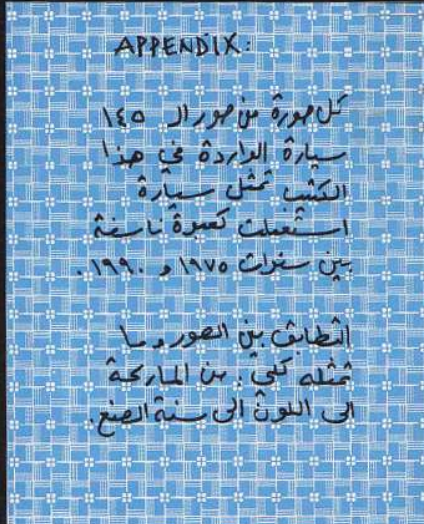 APPENDIX:
كل صورة من صور الـ ١٤٥
سيارة الواردة في هذا
الكتيب تمثل سيارة
استعملت كعبوة ناسفة
بين سنوات ١٩٧٥ و ١٩٩٠.
التطابق بين الصور وما
تمثله كلي: من الماركة
الى اللون الى سنة الصنع.